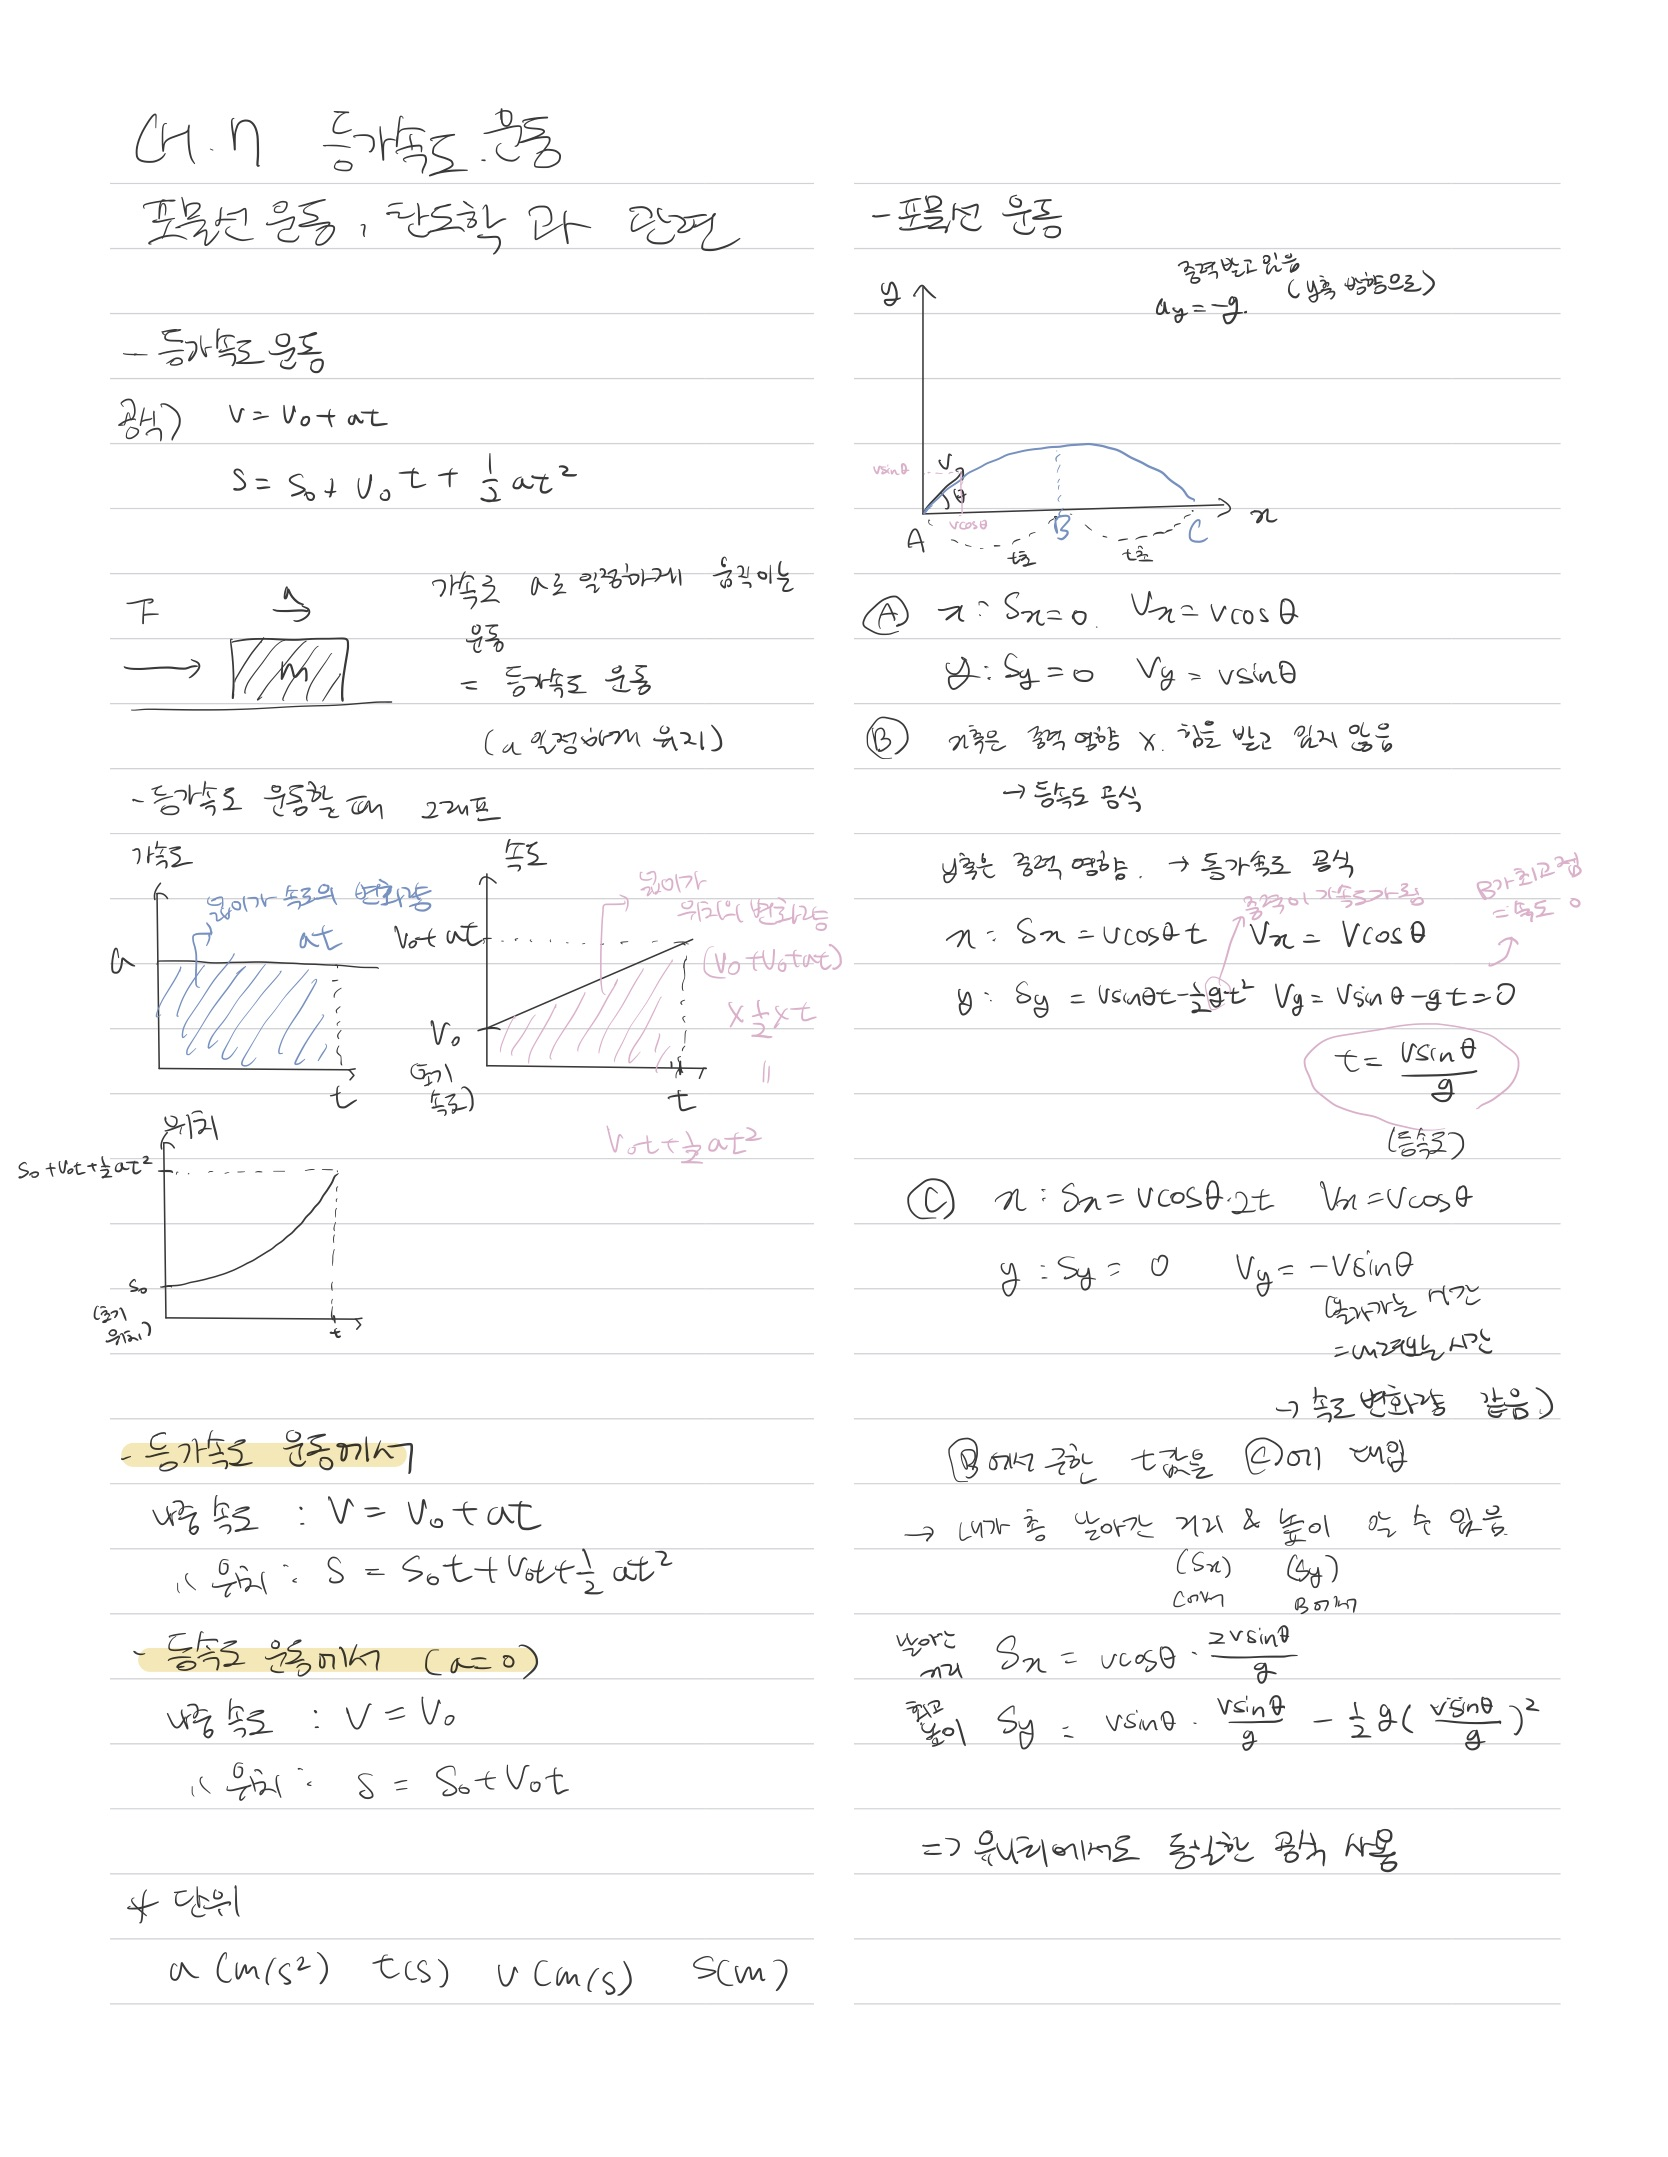 CH.n 등가속도 운동
포물선 운동, 탄도학 과 관련
- 등가속도 운동
공식) v = v₀ + at
s = s₀ + v₀t + 1/2 at²
F a
m
가속도 a로 일정하게 움직이는
운동
= 등가속도 운동
(a 일정하게 유지)
- 등가속도 운동할 때 그래프
가속도
넓이가 속도의 변화량
at
a
t
속도
넓이가
위치의 변화량
v₀ + at
(v₀+v₀+at)
× 1/2 × t
=
v₀
(초기
속도)
t
v₀t + 1/2 at²
위치
s₀ + v₀t + 1/2 at²
s₀
(초기
위치)
t
- 등가속도 운동에서
나중 속도 : v = v₀ + at
〃 위치 : s = s₀t + v₀t + 1/2 at²
- 등속도 운동에서 (a=0)
나중 속도 : v = v₀
〃 위치 : s = s₀ + v₀t
* 단위
a (m/s²) t(s) v (m/s) s(m)
- 포물선 운동
중력 받고 있음
(y축 방향으로)
a_y = -g.
y
vsinθ
v
θ
vcosθ
x
A B C
t초 t초
Ⓐ x : Sx = 0. Vx = vcosθ
y : Sy = 0 Vy = vsinθ
Ⓑ x축은 중력 영향 X. 힘을 받고 있지 않음
→ 등속도 공식
y축은 중력 영향. → 등가속도 공식
중력이 가속도가 됨
B가 최고점
= 속도 0
x : Sx = vcosθt Vx = Vcosθ
y : Sy = vsinθt - 1/2 gt² Vy = Vsinθ - gt = 0
t = vsinθ/g
(등속도)
Ⓒ x : Sx = vcosθ·2t Vx = vcosθ
y : Sy = 0 Vy = -vsinθ
(올라가는 시간
= 내려오는 시간
→ 속도 변화량 같음)
Ⓑ에서 구한 t값을 Ⓒ에 대입
→ 내가 총 날아간 거리 & 높이 알 수 있음.
(Sx) (Sy)
C에서 B에서
날아간
거리 Sx = vcosθ · 2vsinθ/g
최고
높이 Sy = vsinθ · vsinθ/g - 1/2 g(vsinθ/g)²
=> 유니티에서도 동일한 공식 사용